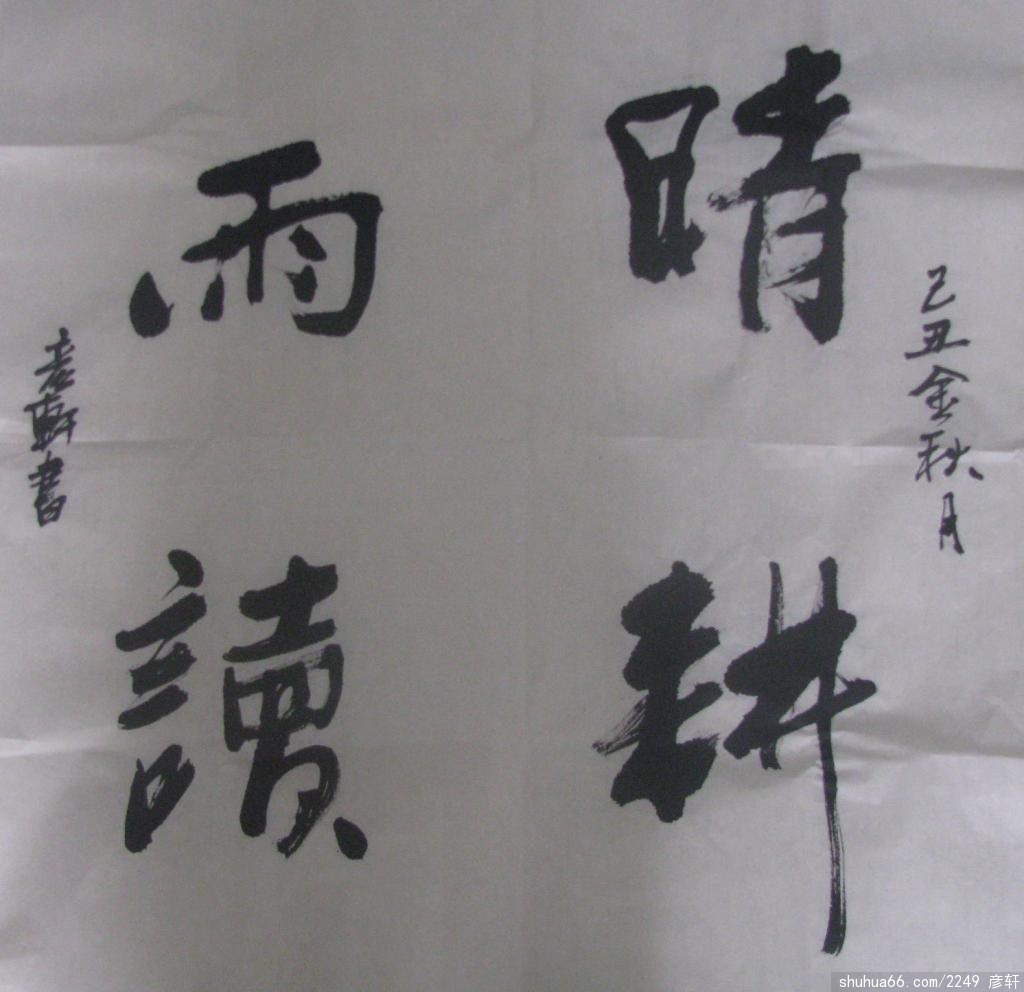 己丑金秋月
晴耕
雨讀
彦軒書
shuhua66.com/2249 彦轩